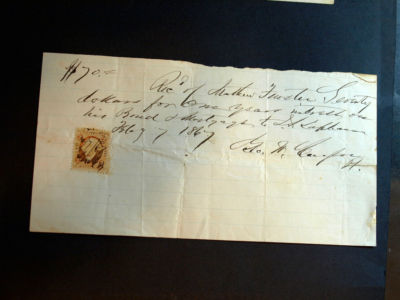 $70.00 Rec'd of Mathew Seventy
dollars for One years interest on
his Bond & Mortgage to
Feby 7 1867
Geo. W.